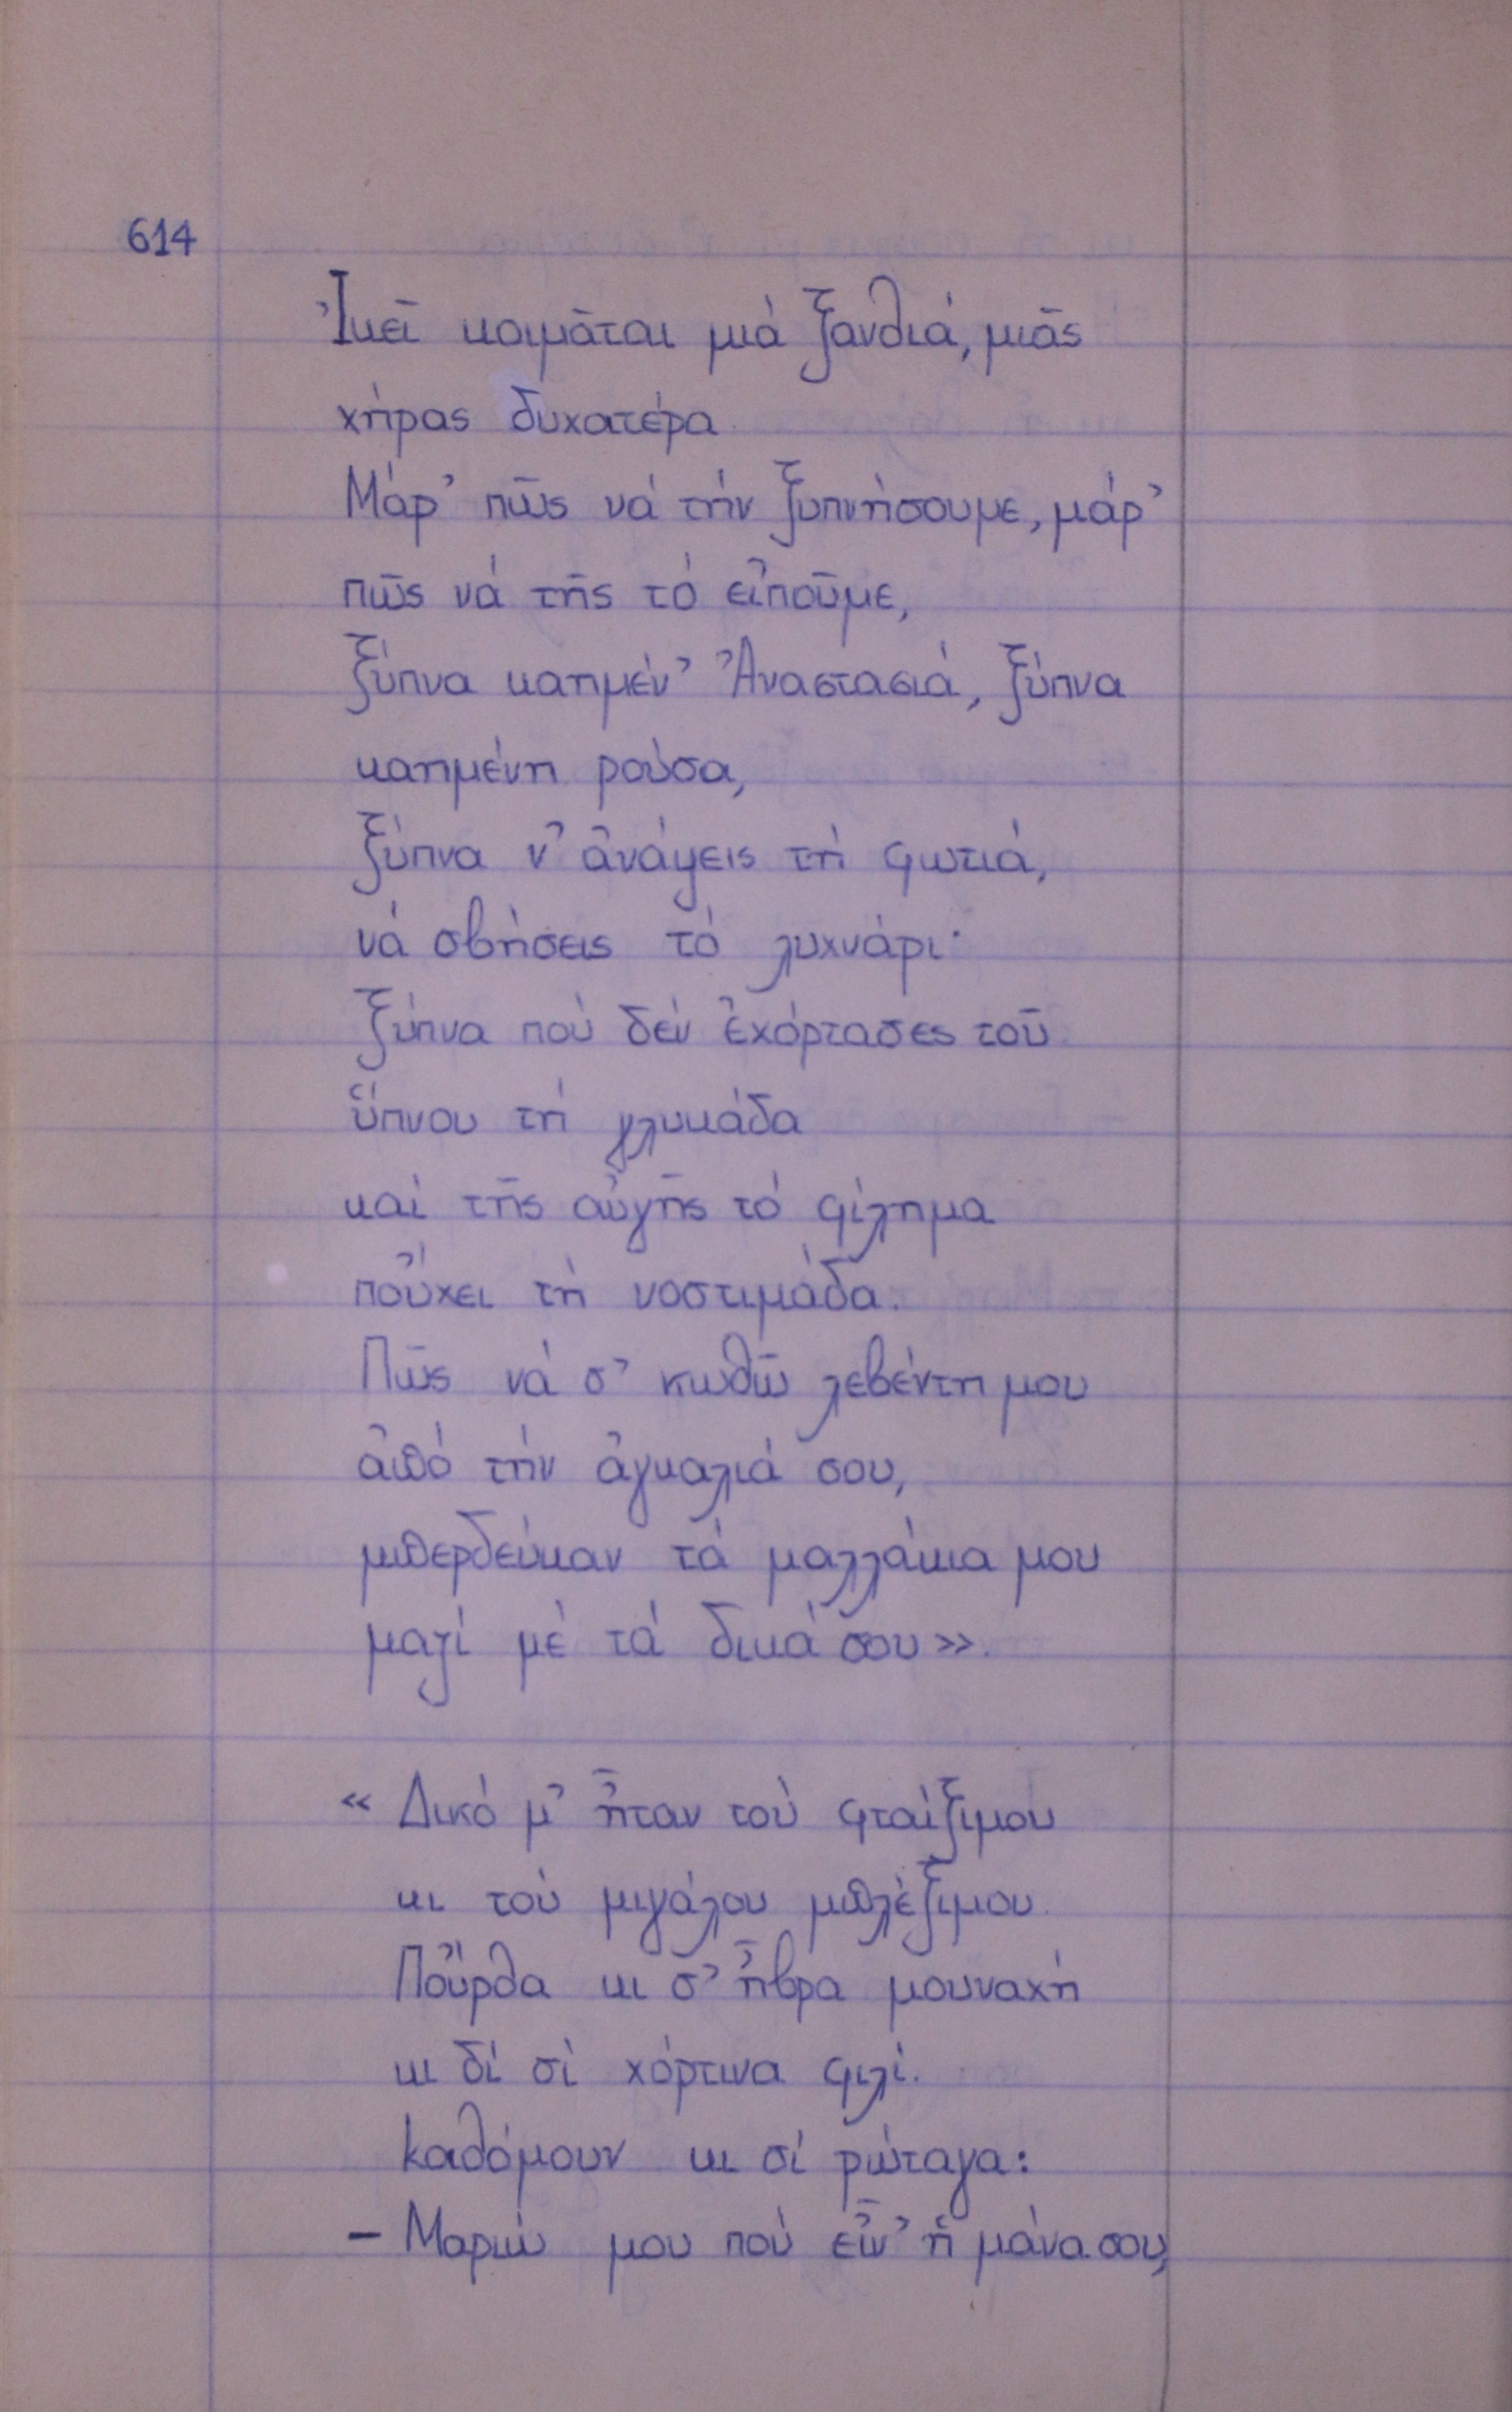 614
Ἰκεῖ κοιμᾶται μιά ξανθιά, μιᾶς
χήρας δυχατέρα
Μάρ' πῶς νά τήν ξυπνήσουμε, μάρ'
πῶς νά τῆς τό εἰποῦμε,
ξύπνα καημέν' Ἀναστασιά, ξύπνα
καημένη ρούσα,
ξύπνα ν' ἀνάψεις τή φωτιά,
νά σβήσεις τό λυχνάρι·
ξύπνα πού δέν ἐχόρτασες τοῦ
ὕπνου τή γλυκάδα
καί τῆς αὐγῆς τό φίλημα
πού̓χει τή νοστιμάδα.
Πῶς νά σ' κωθῶ λεβέντη μου
ἀπό τήν ἀγκαλιά σου,
μπερδεύκαν τά μαλλάκια μου
μαζί μέ τά δικά σου».
« Δικό μ' ἦταν τού φταίξιμου
κι τού μιγάλου μπλέξιμου.
Πού̓ρθα κι σ' ἦβρα μουναχή
κι δί σί χόρτινα φιλί.
Καθόμουν κι σί ρώταγα:
– Μαριώ μου πού εἶν' ἡ μάνα σου,